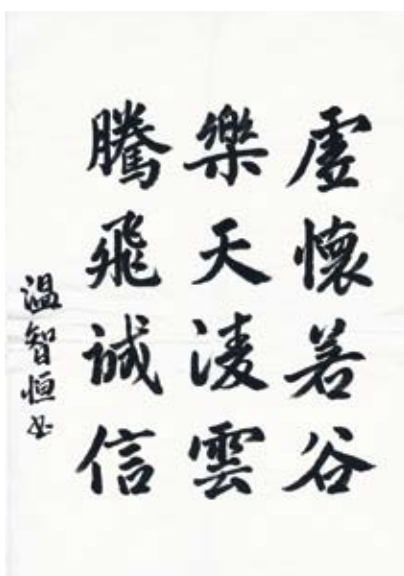 虛懷若谷
樂天凌雲
騰飛誠信
温智恒书